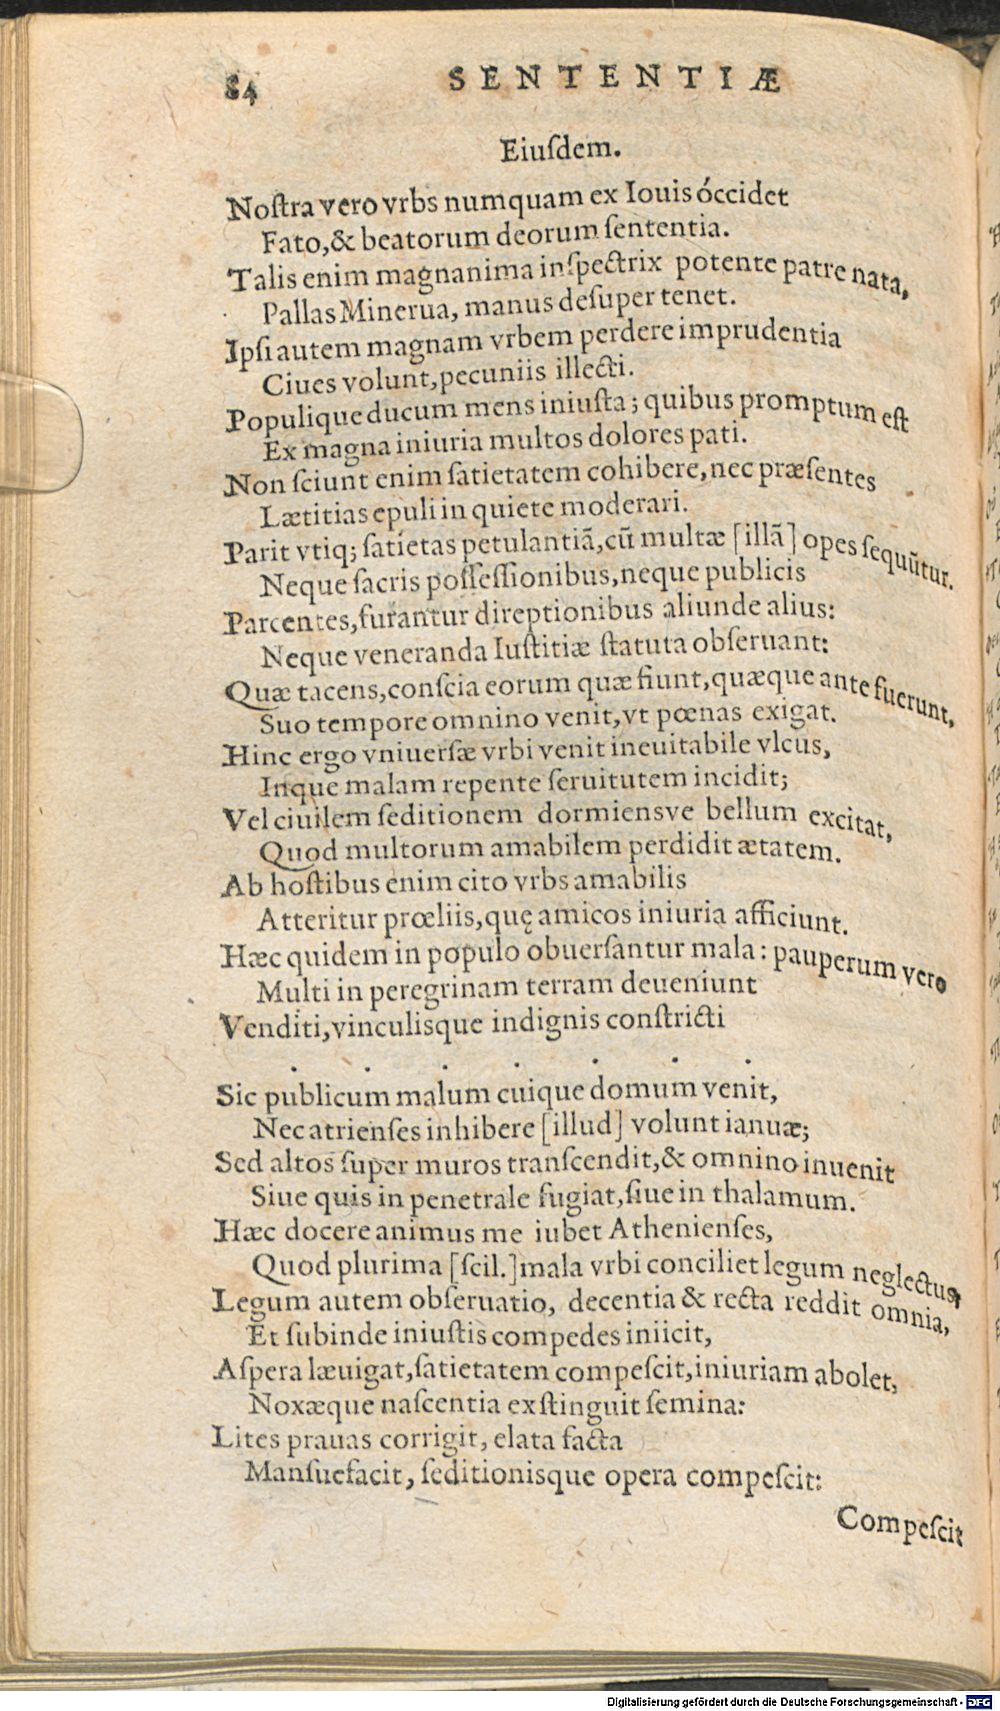 84 SENTENTIÆ
Eiuſdem.
Noſtra vero vrbs numquam ex Iouis óccidet
Fato,& beatorum deorum ſententia.
Talis enim magnanima inſpectrix potente patre nata,
Pallas Minerua, manus deſuper tenet.
Ipſi autem magnam vrbem perdere imprudentia
Ciues volunt,pecuniis illecti.
Populique ducum mens iniuſta; quibus promptum eſt
Ex magna iniuria multos dolores pati.
Non ſciunt enim ſatietatem cohibere,nec præſentes
Lætitias epuli in quiete moderari.
Parit vtiq; ſatietas petulantiã,cũ multæ [illã] opes ſequũtur.
Neque ſacris poſſeſſionibus,neque publicis
Parcentes,furantur direptionibus aliunde alius:
Neque veneranda Iuſtitiæ ſtatuta obſeruant:
Quæ tacens,conſcia eorum quæ fiunt,quæque ante fuerunt,
Suo tempore omnino venit,vt pœnas exigat.
Hinc ergo vniuerſæ vrbi venit ineuitabile vlcus,
Inque malam repente ſeruitutem incidit;
Vel ciuilem ſeditionem dormiensve bellum excitat,
Quod multorum amabilem perdidit ætatem.
Ab hoſtibus enim cito vrbs amabilis
Atteritur prœliis,quę amicos iniuria afficiunt.
Hæc quidem in populo obuerſantur mala: pauperum vero
Multi in peregrinam terram deueniunt
Venditi,vinculisque indignis conſtricti
. . . . . . .
Sic publicum malum cuique domum venit,
Nec atrienſes inhibere [illud] volunt ianuæ;
Sed altos ſuper muros tranſcendit,& omnino inuenit
Siue quis in penetrale fugiat,ſiue in thalamum.
Hæc docere animus me iubet Athenienſes,
Quod plurima [ſcil.] mala vrbi conciliet legum neglectus,
Legum autem obſeruatio, decentia & recta reddit omnia,
Et ſubinde iniuſtis compedes iniicit,
Aſpera læuigat,ſatietatem compeſcit,iniuriam abolet,
Noxæque naſcentia exſtinguit ſemina:
Lites prauas corrigit, elata facta
Manſuefacit, ſeditionisque opera compeſcit:
Compeſcit
Digitalisierung gefördert durch die Deutsche Forschungsgemeinschaft - DFG